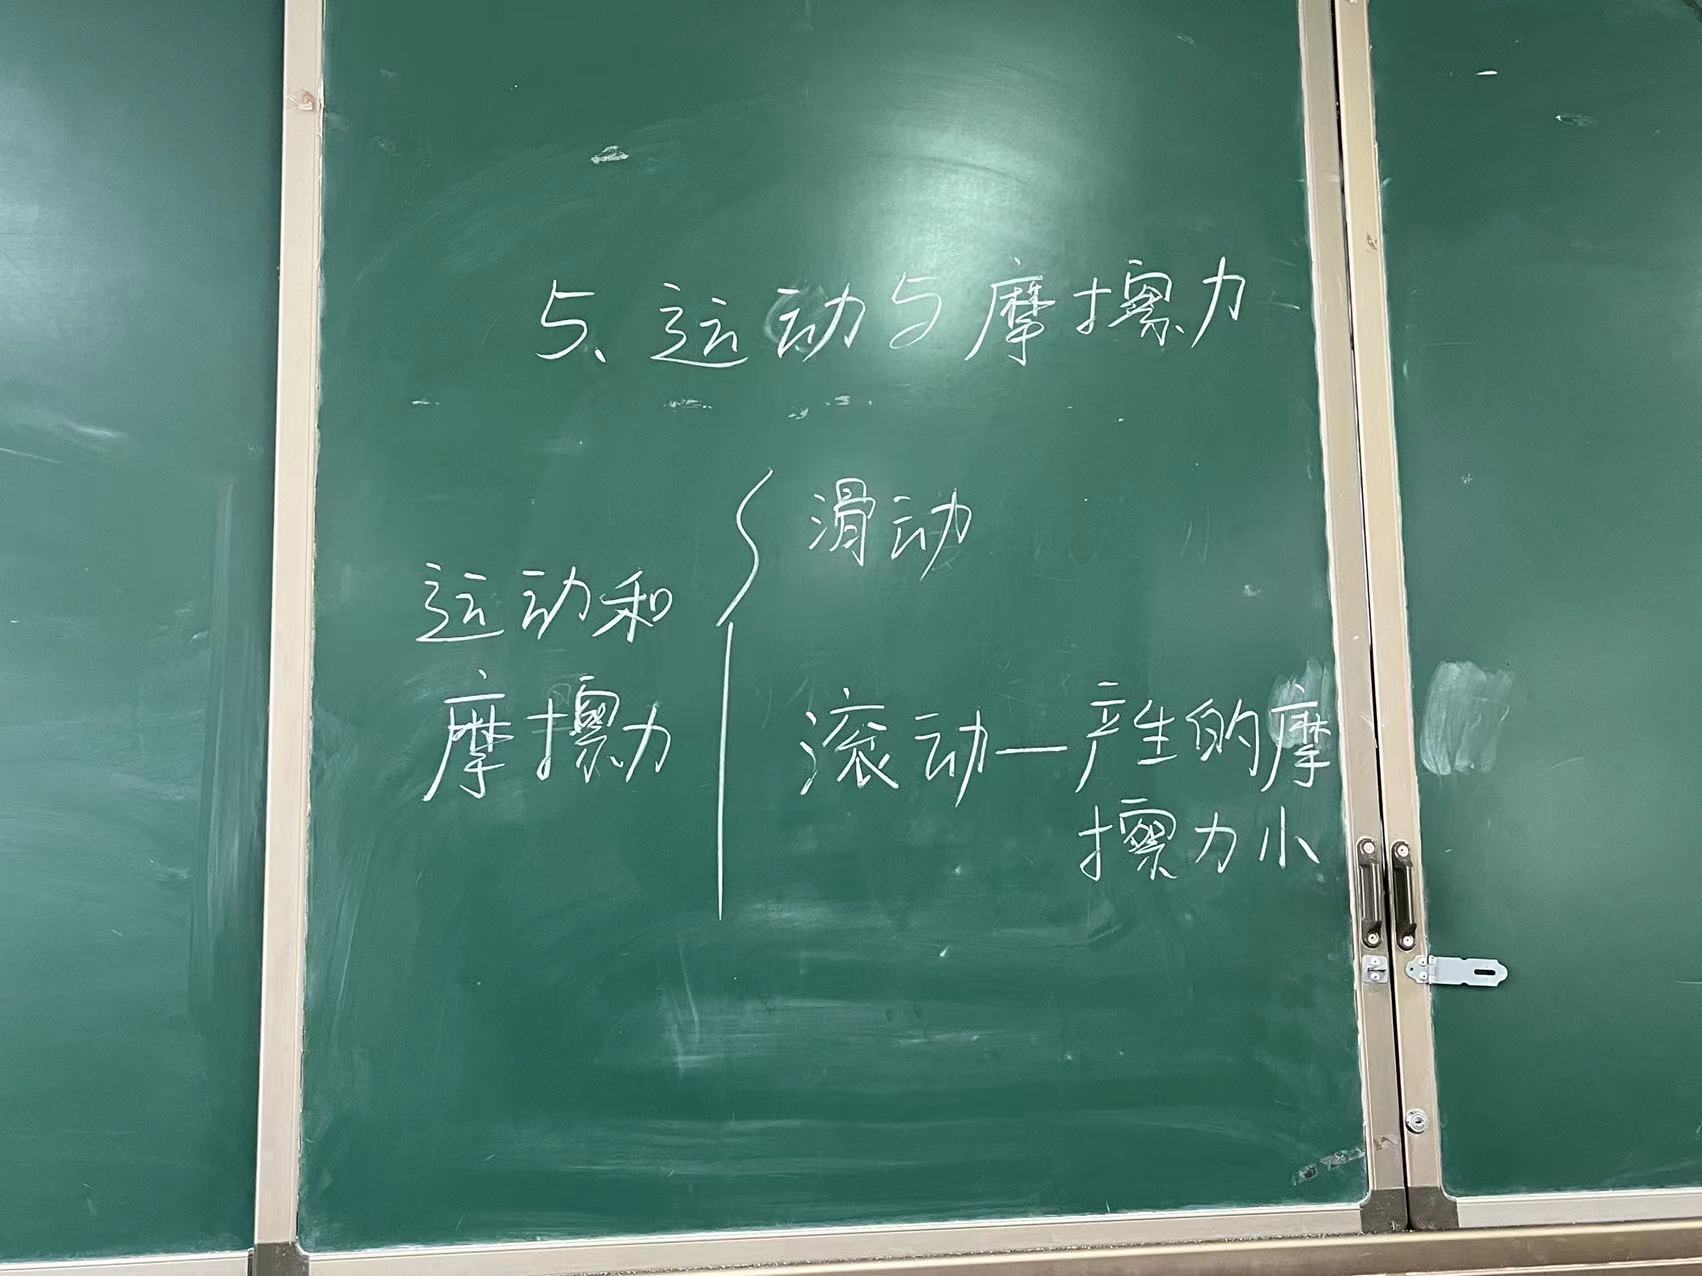 5、运动与摩擦力
滑动
运动和
摩擦力
滚动—产生的摩
擦力小